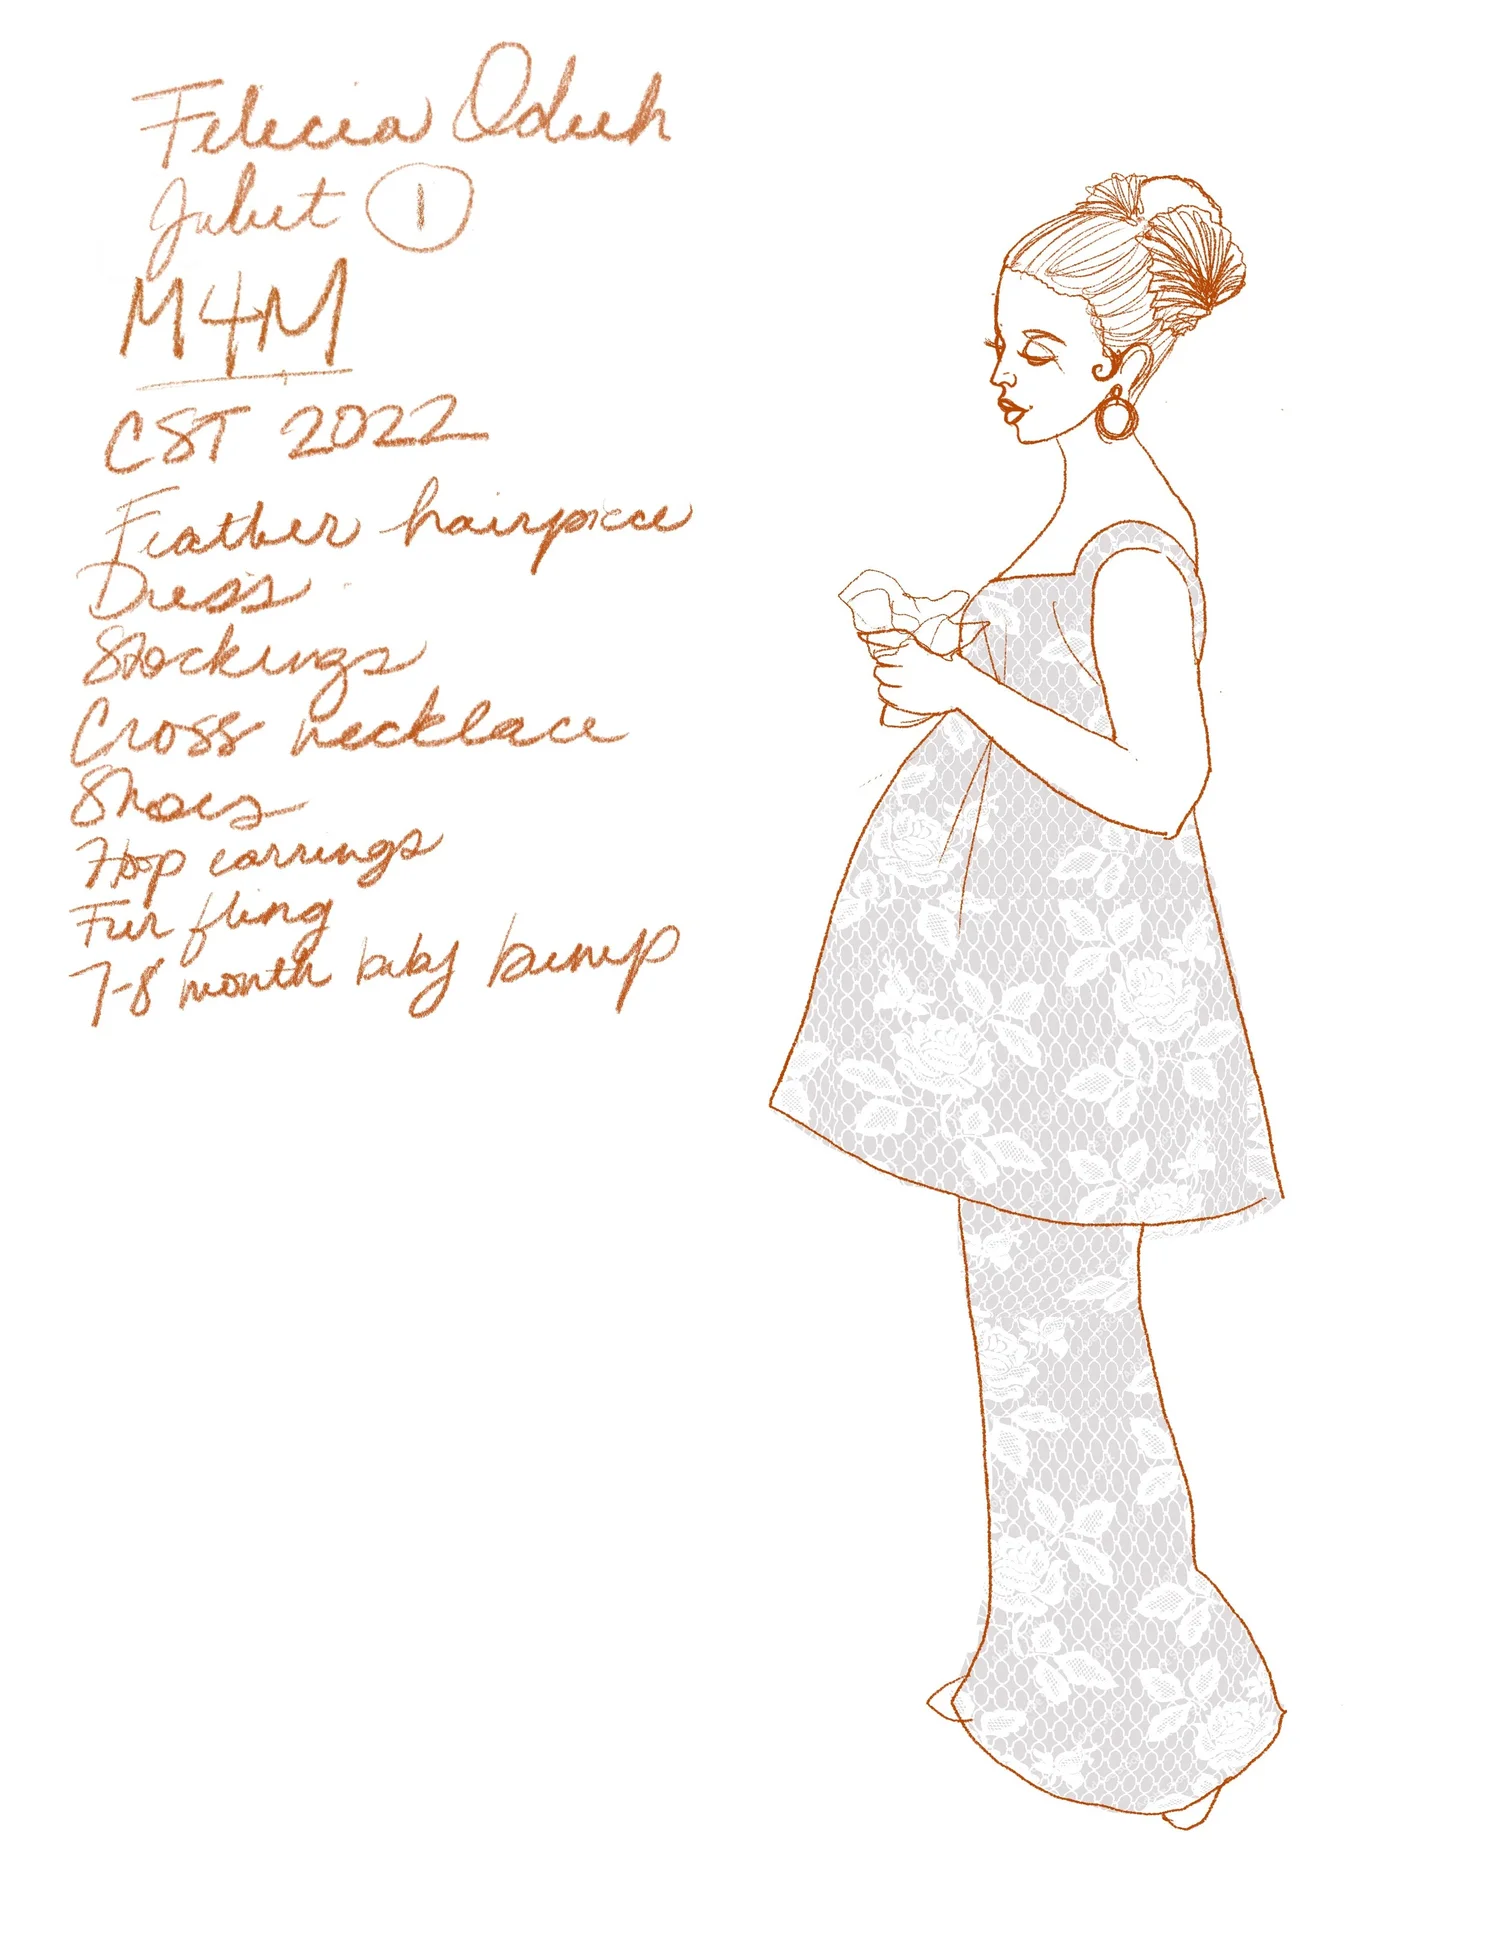 Felicia Oduh
Juliet 1
M4M
CST 2022
Feather hairpiece
Dress
Stockings
Cross necklace
Shoes
Hoop earrings
Fur fling
7-8 month baby bump